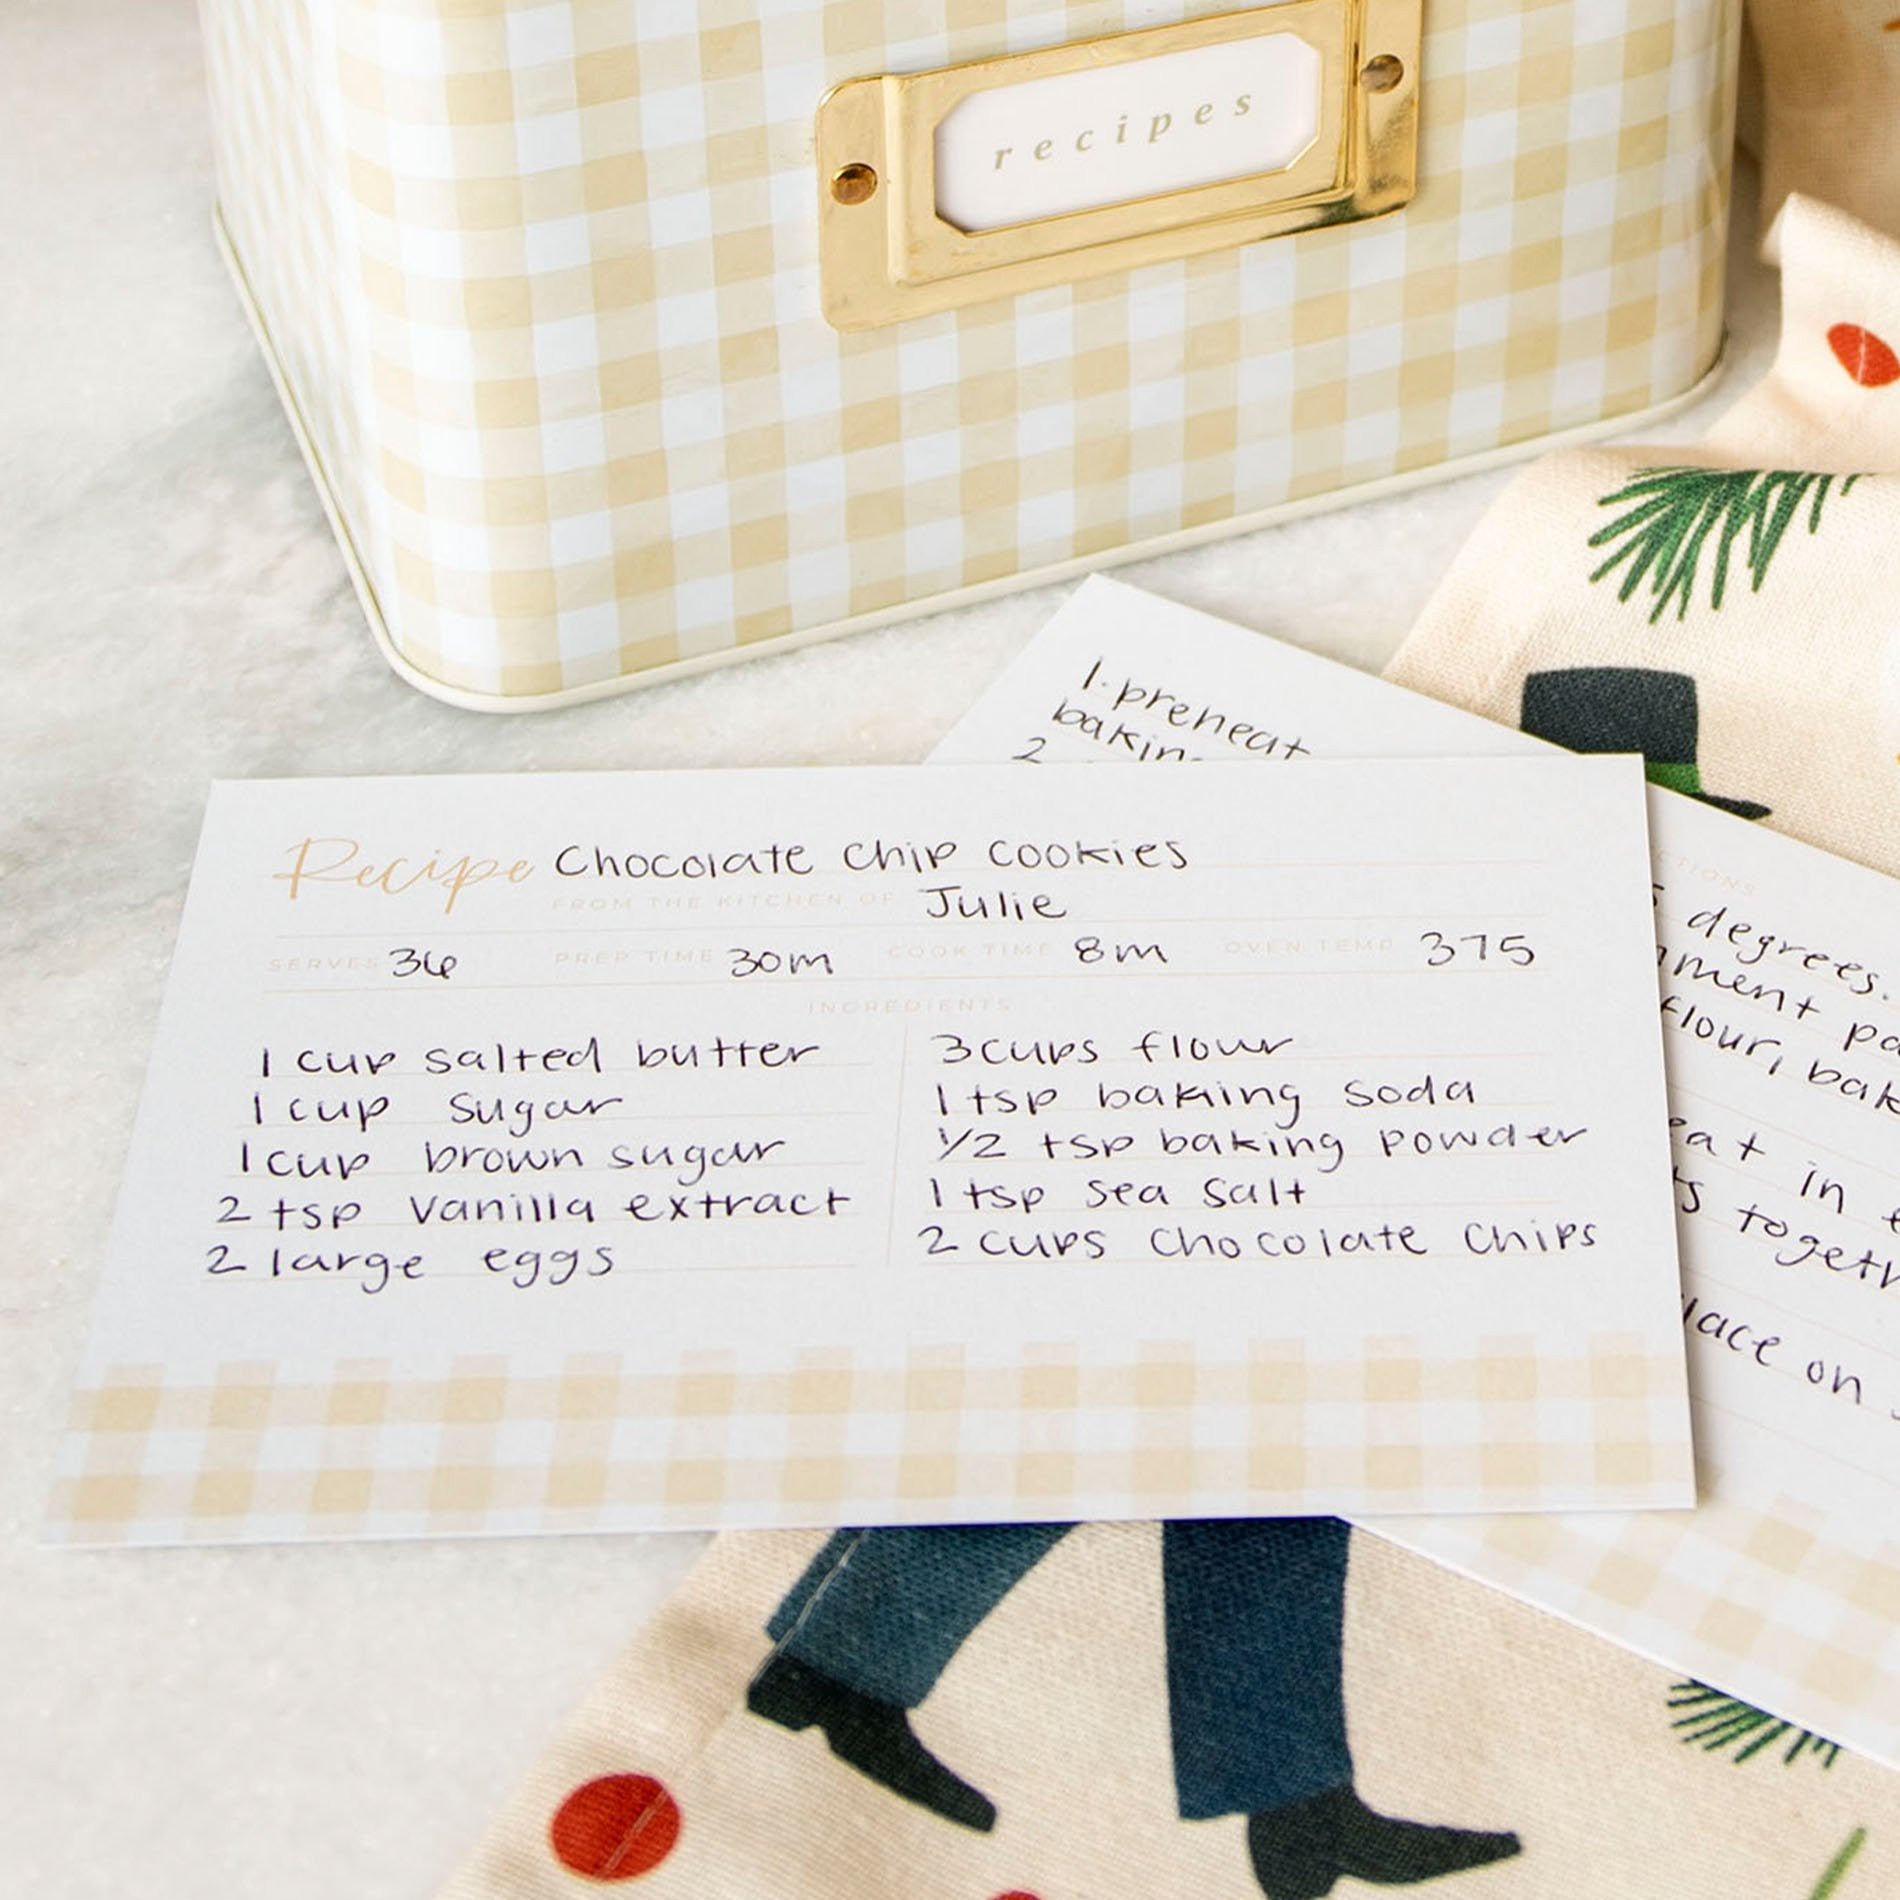 recipes
1. preheat
baking
2
Recipe Chocolate Chip Cookies
FROM THE KITCHEN OF Julie
SERVES 36 PREP TIME 30m COOK TIME 8m OVEN TEMP 375
INGREDIENTS
1 cup salted butter
1 cup sugar
1 cup brown sugar
2 tsp vanilla extract
2 large eggs
3 cups flour
1 tsp baking soda
1/2 tsp baking powder
1 tsp sea salt
2 cups chocolate chips
CTIONS
5 degrees.
ment pa
flour, bak
eat in
ts togeth
lace on